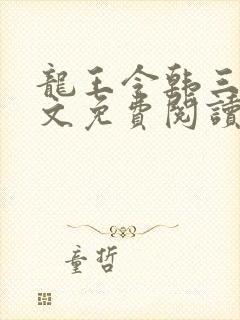 龍王令韩三
文免費閱讀
童哲